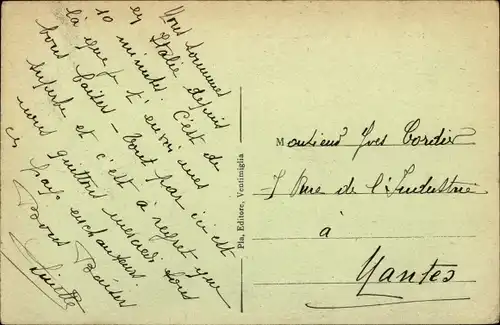 Nous sommes
en Italie depuis
10 minutes. C'est de
là que je t'envoie mes
bons baisers - tout par ici est
superbe et c'est à regret que
nous quittons mercredi tous
ce pays enchanteur.
Bons Baisers
Ginette
Pla, Editore, Ventimiglia
Monsieur Yves Cordier
7 Rue de l'Industrie
à
Nantes